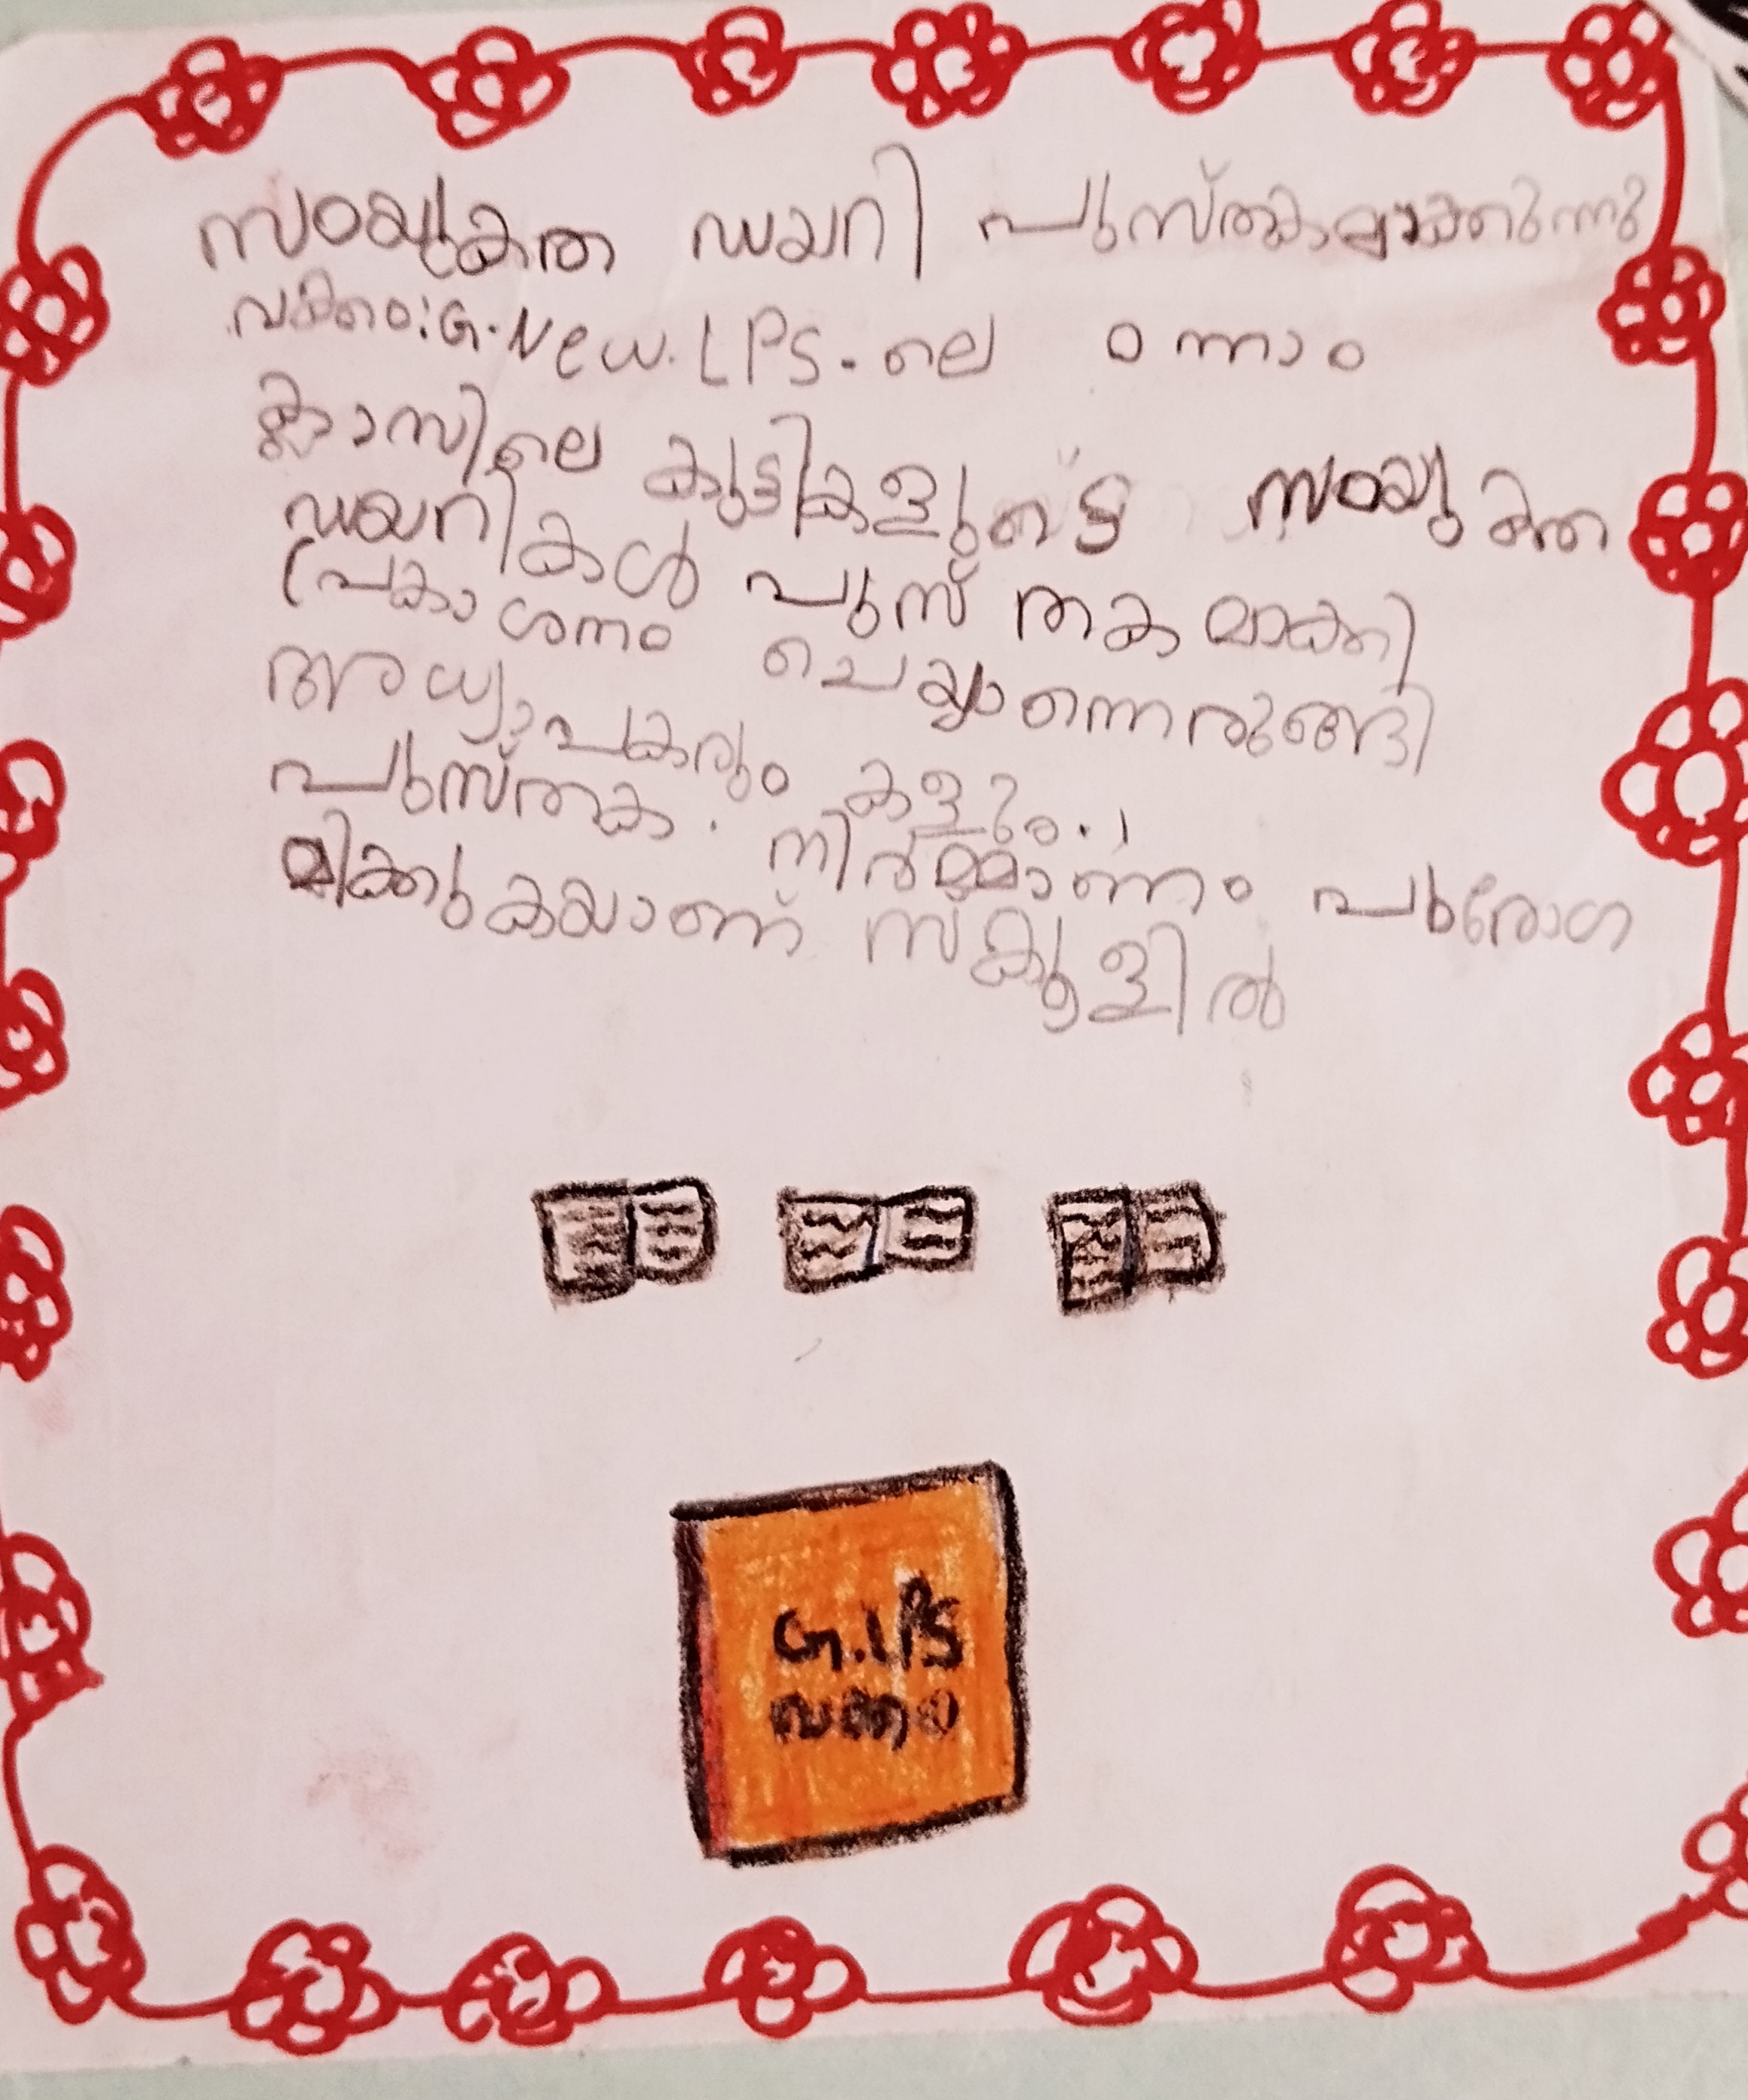 സംയുക്ത ഡയറി പുസ്തകമാക്കുന്നു
വക്കം: G. New. LPS. ലെ ഒന്നാം
ക്ലാസിലെ കുട്ടികളുടെ സംയുക്ത
ഡയറികൾ പുസ്തകമാക്കി
പ്രകാശനം ചെയ്യാനൊരുങ്ങി
അധ്യാപകരും കളും..
പുസ്തക. നിർമ്മാണം പുരോഗ
മിക്കുകയാണ് സ്കൂളിൽ
G.LPS
വക്കം